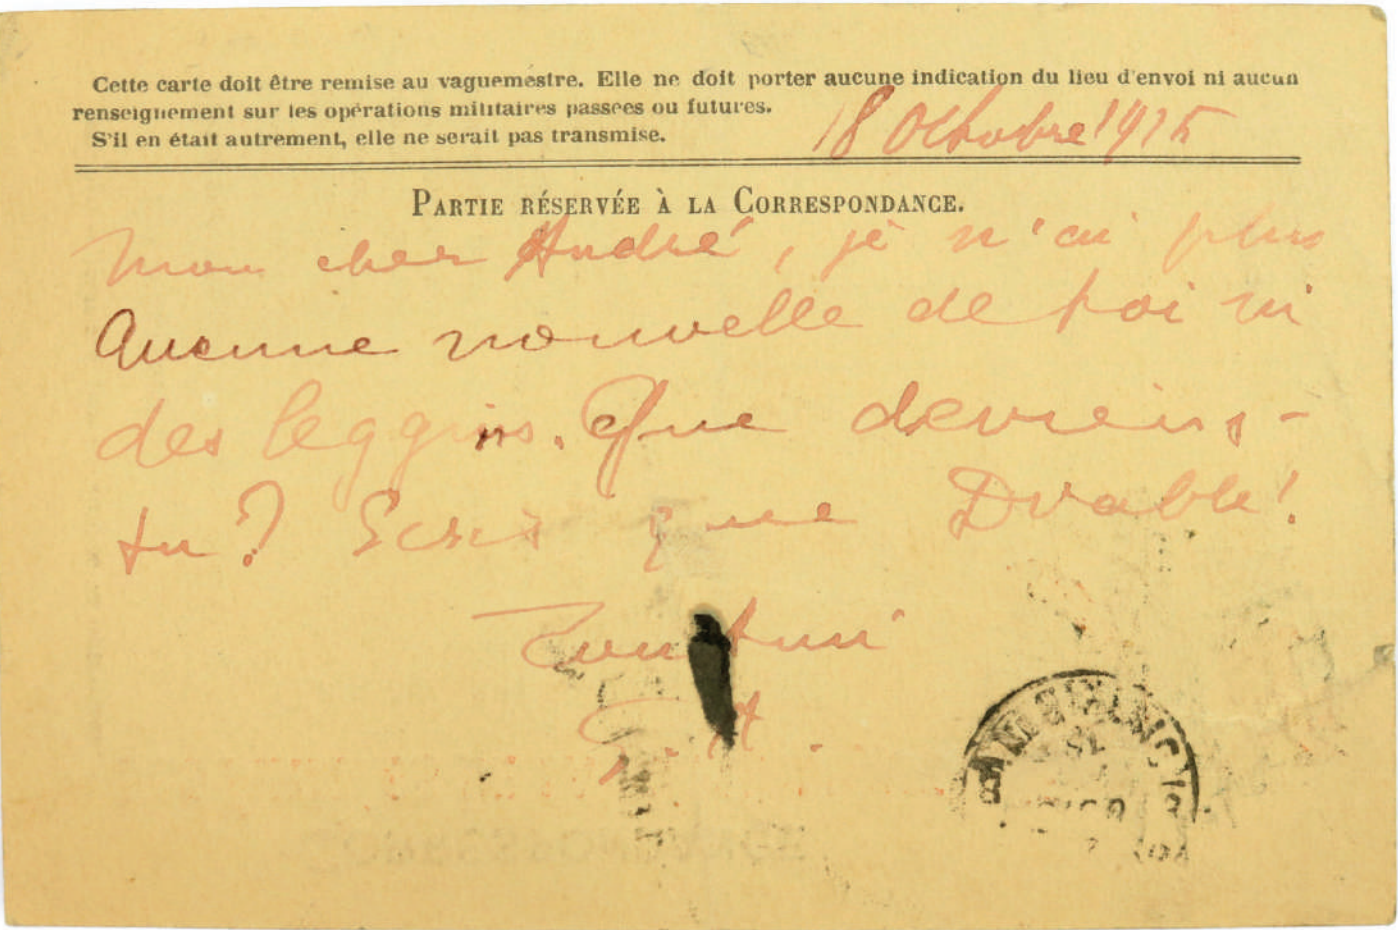 Cette carte doit être remise au vaguemestre. Elle ne doit porter aucune indication du lieu d'envoi ni aucun
renseignement sur les opérations militaires passées ou futures.
S'il en était autrement, elle ne serait pas transmise.
18 Octobre 1915
PARTIE RÉSERVÉE À LA CORRESPONDANCE.
Mon cher André, je n'ai plus
Aucune nouvelle de toi ni
des leggins. Que deviens-
tu? Ecris que Diable!